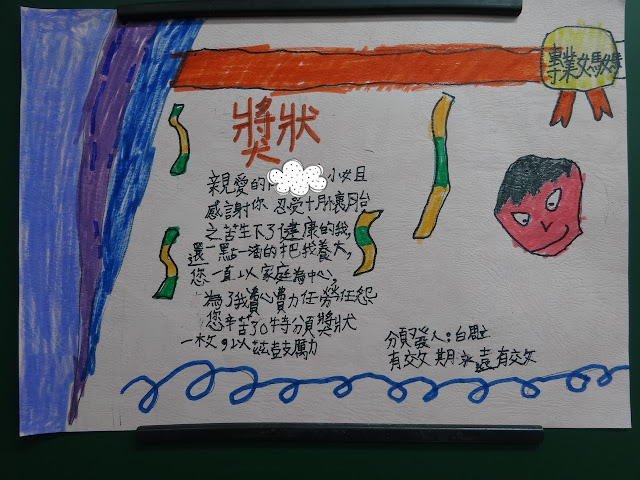 專業女駭客
獎狀
親愛的 小姐
感謝你 忍受十月懷胎
之苦生下了健康的我,
還一點一滴的把我養大,
您一直以家庭為中心,
為了我費心費力任勞任怨
您辛苦了。特頒獎狀
一枚,以茲鼓勵
頒發人:
有效期:永遠有效